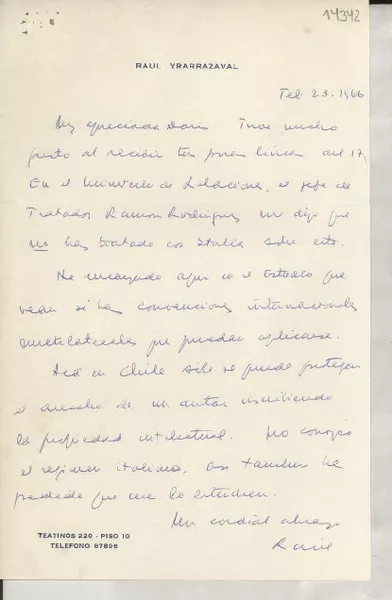 14342
RAUL YRARRAZAVAL
Feb 23. 1966
Muy apreciada Doris Tuve mucho
gusto al recibir tus pocas líneas del 17,
En el Ministerio de Relaciones, el jefe de
Tratados Ramon Rodriguez me dijo que
no hay tratado con Italia sobre esto.
He encargado aqui en el Estudio que
vean si hay convenciones internacionales
multilaterales que puedan aplicarse.
Acá en Chile sólo se puede proteger
el derecho de un autor inscribiendo
la propiedad intelectual. No conozco
el régimen italiano, asi tambien he
pedido que me lo estudien.
Un cordial abrazo
Raúl
TEATINOS 220 - PISO 10
TELEFONO 67896